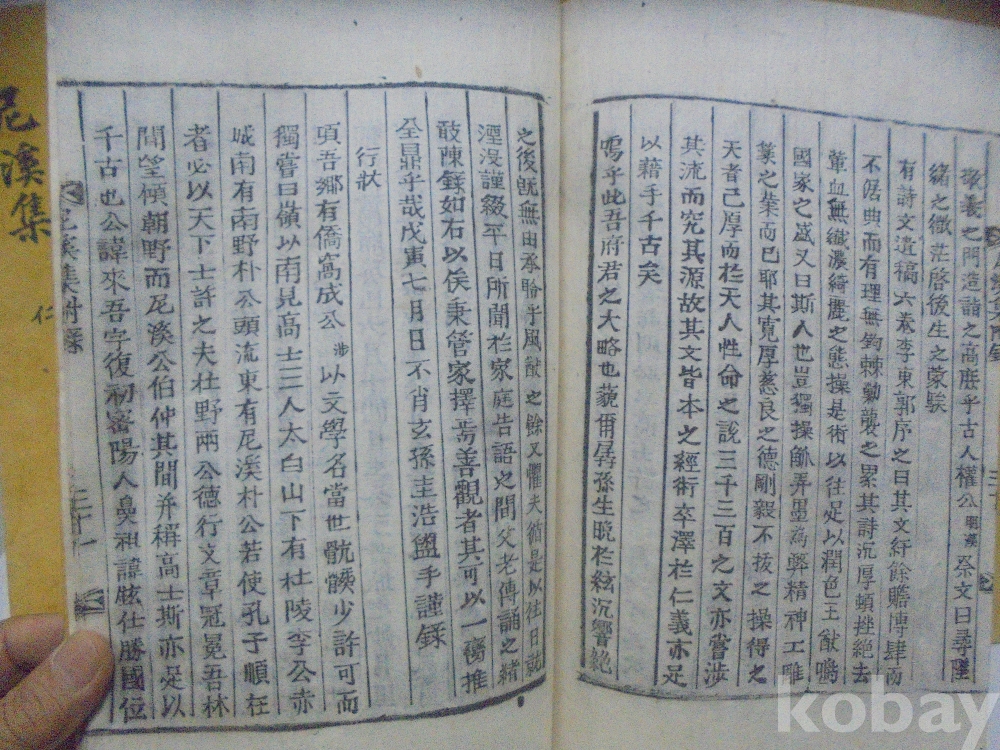 敬義之門造詣之高庶乎古人權公明溪祭文曰尋墜
緖之微茫啓後生之蒙騃
有詩文遺稿六卷李東郭序之曰其文紆餘贍博肆而
不窕典而有理無鉤棘勦襲之累其詩沉厚頓挫絕去
葷血無纖濃綺麗之態操是術以往足以潤色王猷鳴
國家之盛又曰斯人也豈獨操觚弄墨爲弊精神工雕
篆之業而已耶其寬厚慈良之德剛毅不拔之操得之
天者已厚而於天人性命之說三千三百之文亦嘗涉
其流而究其源故其文皆本之經術卒澤於仁義亦足
以藉手千古矣
嗚乎此吾府君之大略也藐爾孱孫生晩於絃沉響絕
之後旣無由承聆乎風猷之餘又懼夫循是以往日就
湮沒謹綴平日所聞於家庭告語之間父老傳誦之緖
敢陳錄如右以俟秉管家擇焉善觀者其可以一臠推
全鼎乎哉戊寅七月日不肖玄孫圭浩盥手謹錄
行狀
頃吾鄕有僑寓成公涉以文學名當世骯髒少許可而
獨嘗曰嶺以南見高士三人太白山下有杜陵李公赤
城南有南野朴公頭流東有尼溪朴公若使孔子順在
者必以天下士許之夫杜野兩公德行文章冠冕吾林
聞望傾朝野而尼溪公伯仲其間并稱高士斯亦足以
千古也公諱來吾字復初密陽人鼻祖諱鉉仕勝國位
尼溪集附錄
三十一
尼溪集
仁
kobay